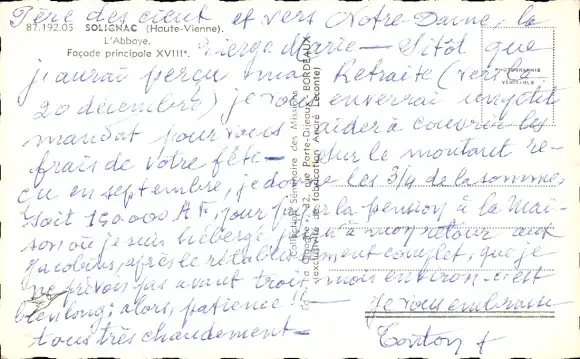 Père des cieux et vers Notre-Dame, la
87.192.05 SOLIGNAC (Haute-Vienne).
L'Abbaye.
Façade principale XVIIIᵉ.
Vierge Marie — Sitôt que
j'aurai perçu ma Retraite (vers le
20 décembre) je vous enverrai un petit
mandat pour vous aider à couvrir les
frais de votre fête — sur le montant re-
çu en septembre, je donne les 3/4 de la somme,
soit 150.000 AF, pour payer la pension à la Mai-
son où je suis hébergé, à mon retour aux
Jacobins, après le rétablissement complet, que je
ne prévois pas avant trois mois environ — c'est
bien long; alors, patience !! —
je vous embrasse
tous très chaudement —
Tonton
PHOTOGRAPHIE
VÉRITABLE
Collection Séminaire des Missions
32, rue Porte-Dijeaux - BORDEAUX
(exclusivité de fabrication André Leconte)